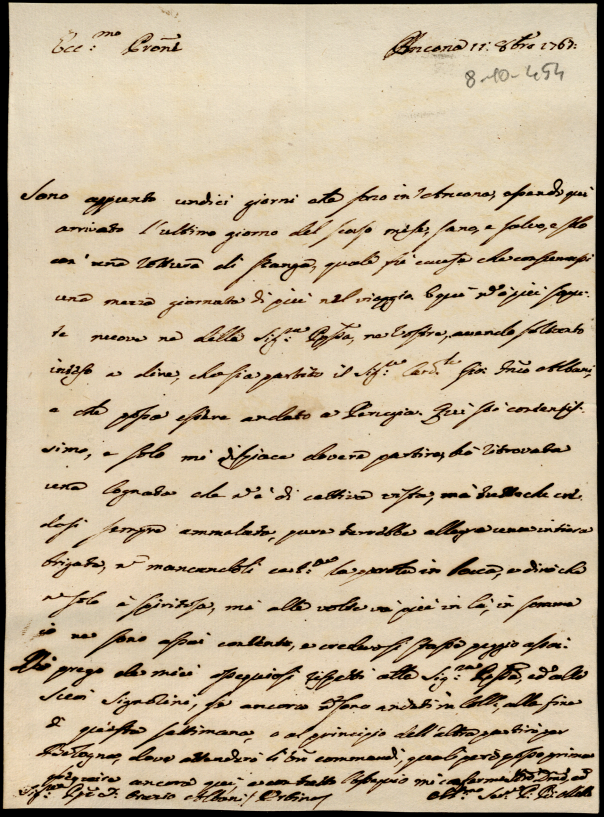 Ecc:mo Prone Ancona 11: 8bre 1767:
8-10-454
Sono appunto undici giorni che sono in Ancona, essendo qui
arrivato l'ultimo giorno del scorso mese, sano, e salvo, e solo
con una rottura di stanga, quale fù causa che consumassi
una mezza giornata di più nel viaggio
te nuove ne della Sig:ra ne vostre, avendo soltanto
inteso a dire, che sia partito il Sig:re Card:le Gio: Albani,
e che possa essere andato a Perugia. Qui stò contentis-
simo, e solo mi dispiace dovere partire, hò ritrovata
una Cognata che è di cattiva vista, mà tuttoche cre
dasi sempre ammalata, pure terrebbe allegra una intiera
brigata, mancandoli la parola in bocca, e dirò che
solo è spiritosa, mà alle volte và più in là, in somma
io ne sono assai contento, e credevo si stasse peggio assai.
prego de miei ossequiosi rispetti alla Sig:ra ed alli
Signorini, se ancora sono andati in alla fine
di questa settimana, o al principio dell'altra partirò per
Bologna, dove attenderò li commandi, quali però posso prima
ancora qui, e con tutto l'ossequio mi
Albani / Urbino